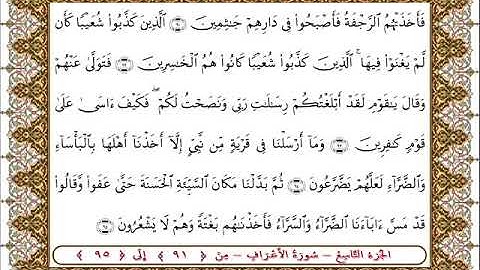 فَأَخَذَتْهُمُ ٱلرَّجْفَةُ فَأَصْبَحُوا۟ فِى دَارِهِمْ جَـٰثِمِينَ ﴿٩١﴾ ٱلَّذِينَ كَذَّبُوا۟ شُعَيْبًا كَأَن
لَّمْ يَغْنَوْا۟ فِيهَا ۚ ٱلَّذِينَ كَذَّبُوا۟ شُعَيْبًا كَانُوا۟ هُمُ ٱلْخَـٰسِرِينَ ﴿٩٢﴾ فَتَوَلَّىٰ عَنْهُمْ
وَقَالَ يَـٰقَوْمِ لَقَدْ أَبْلَغْتُكُمْ رِسَـٰلَـٰتِ رَبِّى وَنَصَحْتُ لَكُمْ ۖ فَكَيْفَ ءَاسَىٰ عَلَىٰ
قَوْمٍ كَـٰفِرِينَ ﴿٩٣﴾ وَمَآ أَرْسَلْنَا فِى قَرْيَةٍ مِّن نَّبِىٍّ إِلَّآ أَخَذْنَآ أَهْلَهَا بِٱلْبَأْسَآءِ
وَٱلضَّرَّآءِ لَعَلَّهُمْ يَضَّرَّعُونَ ﴿٩٤﴾ ثُمَّ بَدَّلْنَا مَكَانَ ٱلسَّيِّئَةِ ٱلْحَسَنَةَ حَتَّىٰ عَفَوا۟ وَّقَالُوا۟
قَدْ مَسَّ ءَابَآءَنَا ٱلضَّرَّآءُ وَٱلسَّرَّآءُ فَأَخَذْنَـٰهُم بَغْتَةً وَهُمْ لَا يَشْعُرُونَ ﴿٩٥﴾
الجزء التاسع - سورة الأعراف - من ﴿ ٩١ ﴾ إلى ﴿ ٩٥ ﴾